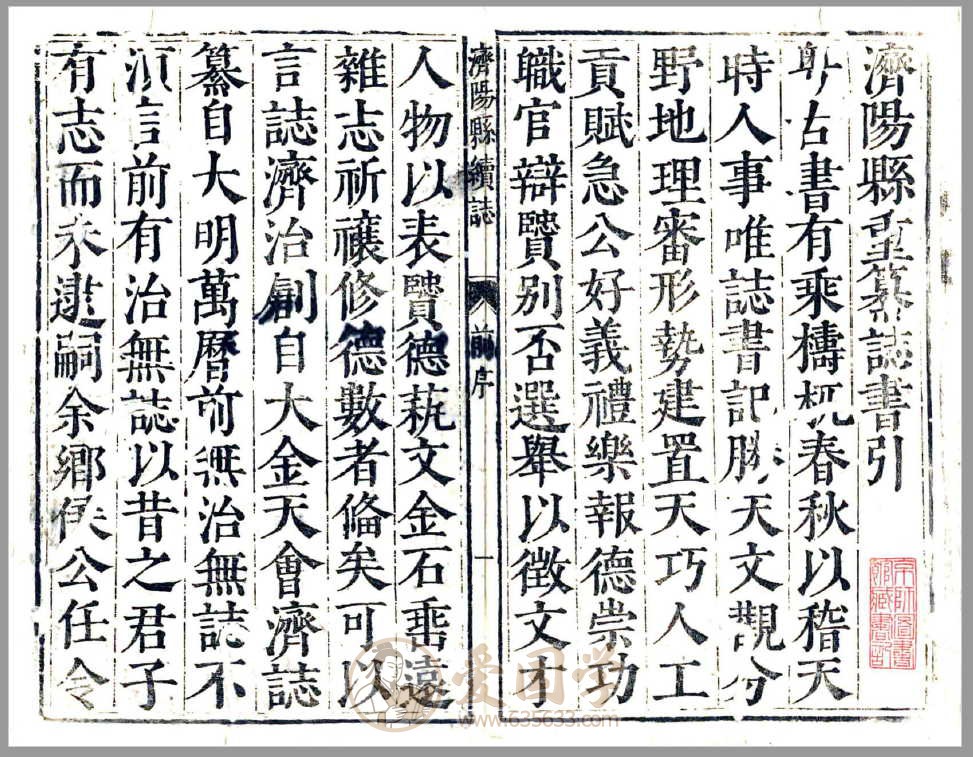 濟陽縣重纂誌書引
古書有乘檮杌春秋以稽天
時人事唯誌書記勝天文觀分
野地理審形勢建置天巧人工
貢賦急公好義禮樂報德崇功
職官辯賢別否選舉以徵文才
濟陽縣續誌
前序
一
人物以表賢德蓺文金石垂遠
雜志祈禳修德數者俻矣可以
言誌濟治創自大金天會濟誌
纂自大明萬曆前無治無誌不
須言前有治無誌以昔之君子
有志而未逮嗣余鄉侯公任令
京師圖書館藏書記
爱国学
www.635633.com